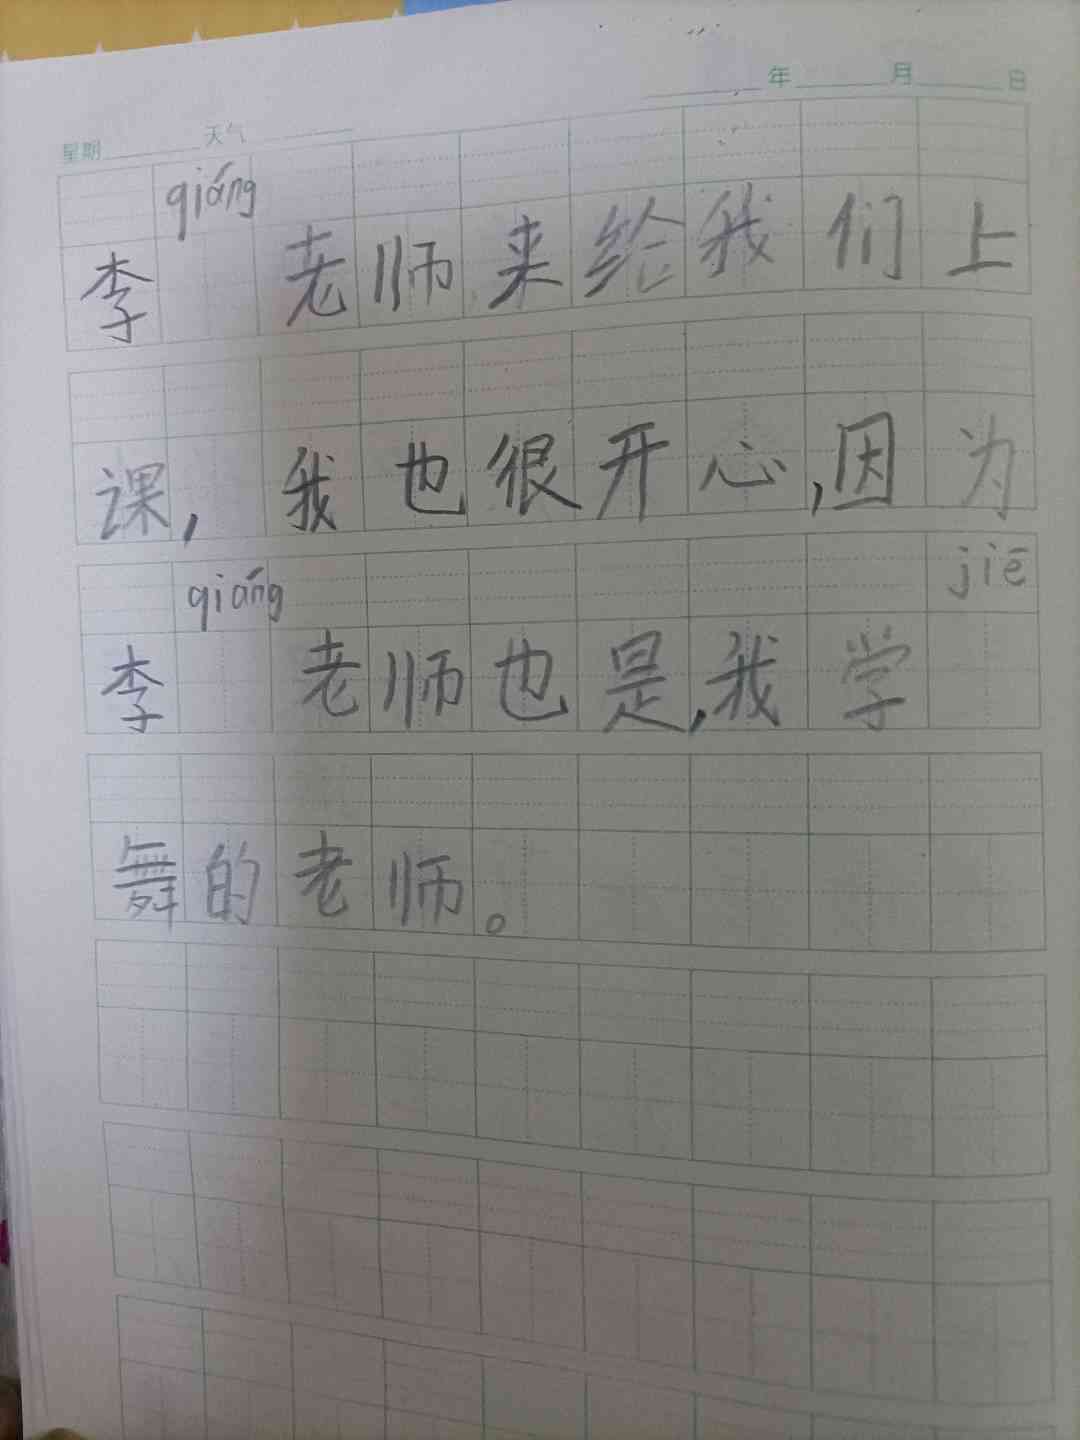 年 月 日
星期 天气
qiáng
李 老师来给我们上
课，我也很开心，因为
qiáng jiē
李 老师也是，我学
舞的老师。